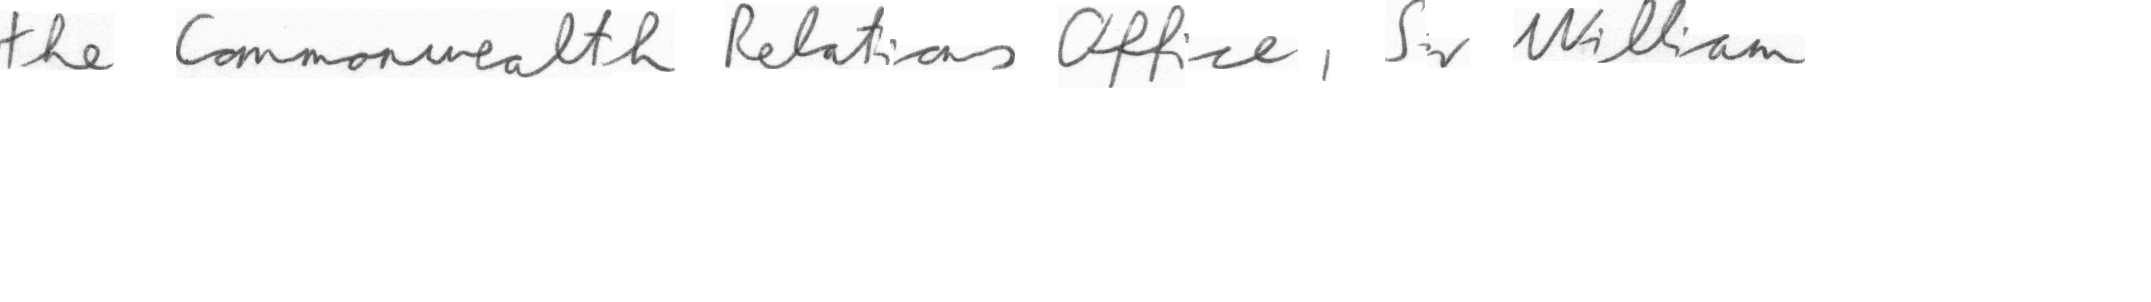 the Commonwealth Relations Office, Sir William